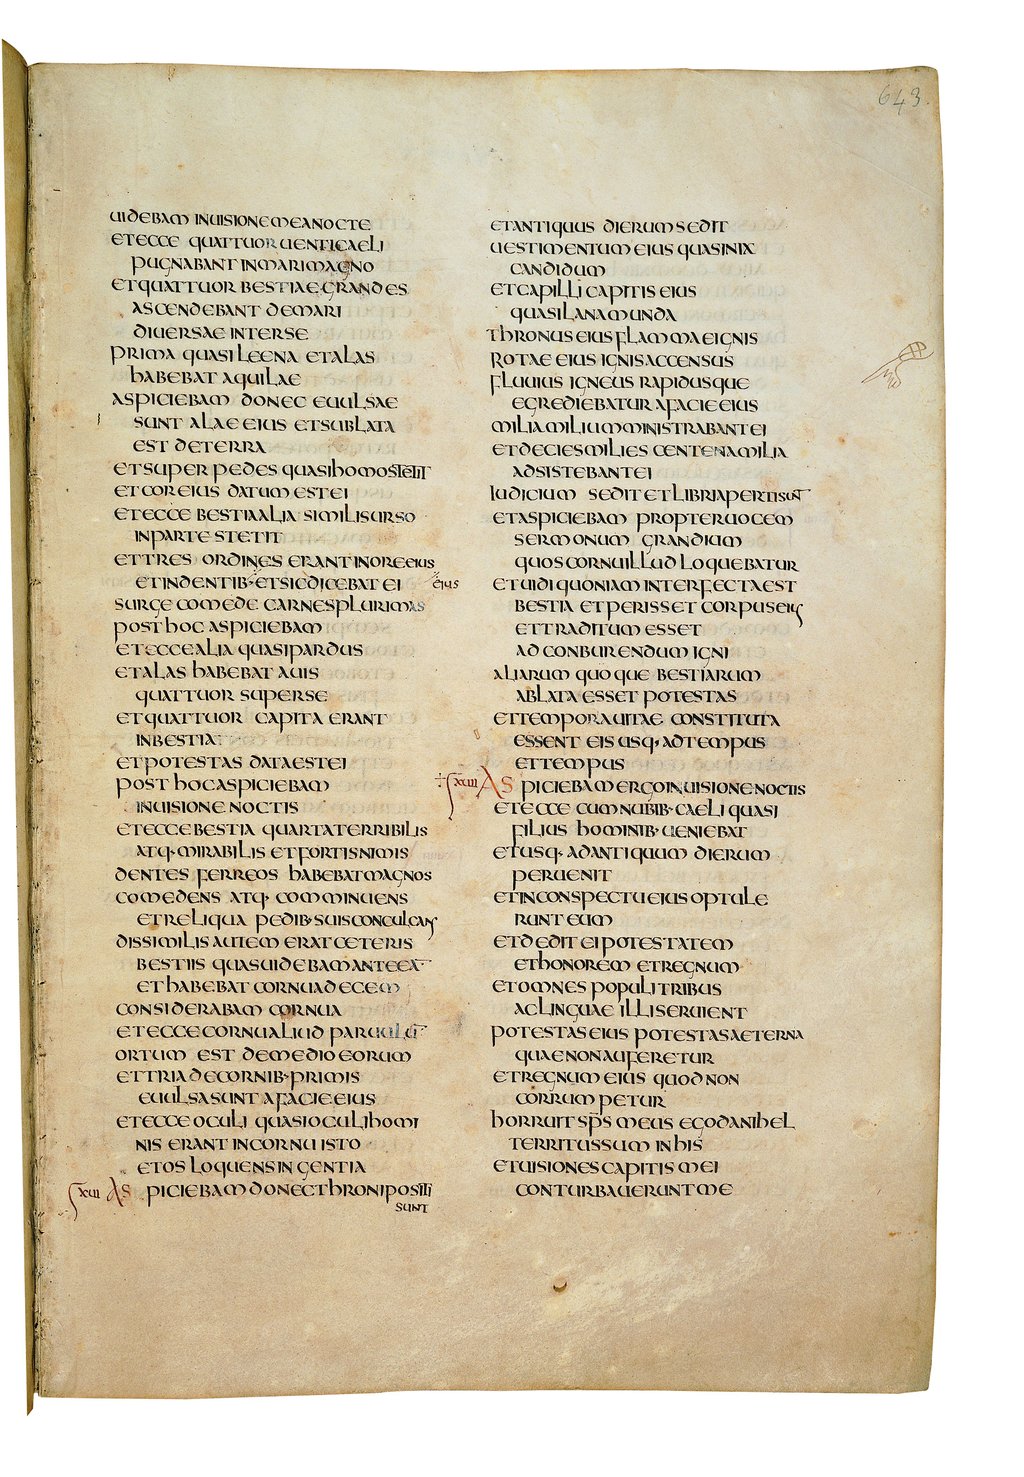 643
UIDEBAM INUISIONEMEANOCTE
ETECCE QUATTUOR UENTICAELI
PUGNABANT INMARIMAGNO
ETQUATTUOR BESTIAEGRANDES
ASCENDEBANT DEMARI
DIUERSAE INTERSE
PRIMA QUASI LEENA ETALAS
HABEBAT AQUILAE
ASPICIEBAM DONEC EUULSAE
SUNT ALAE EIUS ETSUBLATA
EST DETERRA
ETSUPER PEDES QUASIHOMOSTETIT
ETCOREIUS DATUM ESTEI
ETECCE BESTIAALIA SIMILISURSO
INPARTE STETIT
ETTRES ORDINES ERANTINOREEIUS
ETINDENTIB·ETSICDICEBAT EI EIUS
SURGE COMEDE CARNESPLURIMAS
POST HOC ASPICIEBAM
ETECCEALIA QUASIPARDUS
ETALAS HABEBAT AUIS
QUATTUOR SUPERSE
ETQUATTUOR CAPITA ERANT
INBESTIA
ETPOTESTAS DATAESTEI
POST HOCASPICIEBAM
INUISIONE NOCTIS
ETECCEBESTIA QUARTATERRIBILIS
ATQ·MIRABILIS ETFORTISNIMIS
DENTES FERREOS HABEBATMAGNOS
COMEDENS ATQ· COMMINUENS
ETRELIQUA PEDIB·SUISCONCULCANS
DISSIMILIS AUTEM ERAT CETERIS
BESTIIS QUASUIDEBAMANTEEA
ETHABEBAT CORNUADECEM
CONSIDERABAM CORNUA
ETECCECORNUALIUD PARUULŪ
ORTUM EST DEMEDIOEORUM
ETTRIADECORNIB·PRIMIS
EUULSASUNT AFACIEEIUS
ETECCEOCULI QUASIOCULIHOMI
NIS ERANT INCORNU ISTO
ETOS LOQUENSINGENTIA
XUII ASPICIEBAMDONECTHRONIPOSITI
SUNT
ETANTIQUUS DIERUMSEDIT
UESTIMENTUM EIUS QUASINIX
CANDIDUM
ETCAPILLI CAPITIS EIUS
QUASILANAMUNDA
THRONUS EIUS FLAMMAEIGNIS
ROTAE EIUS IGNISACCENSUS
FLUUIUS IGNEUS RAPIDUSQUE
EGREDIEBATUR AFACIEEIUS
MILIAMILIUMMINISTRABANTEI
ETDECIESMILIES CENTENAMILIA
ADSISTEBANTEI
IUDICIUM SEDIT ETLIBRIAPERTISUNT
ETASPICIEBAM PROPTERUOCEM
SERMONUM GRANDIUM
QUOS CORNUILLUD LOQUEBATUR
ETUIDI QUONIAM INTERFECTAEST
BESTIA ETPERISSET CORPUSEIUS
ETTRADITUM ESSET
AD CONBURENDUM IGNI
ALIARUM QUOQUE BESTIARUM
ABLATA ESSET POTESTAS
ETTEMPORAUITAE CONSTITUTA
ESSENT EIS USQ·ADTEMPUS
ETTEMPUS
XUIII ASPICIEBAMERGOINUISIONENOCTIS
ETECCE CUMNUBIB·CAELI QUASI
FILIUS HOMINIB·UENIEBAT
ETUSQ·ADANTIQUUM DIERUM
PERUENIT
ETINCONSPECTUEIUSOPTULE
RUNT EUM
ETDEDIT EI POTESTATEM
ETHONOREM ETREGNUM
ETOMNES POPULI TRIBUS
ACLINGUAE ILLISERUIENT
POTESTASEIUS POTESTASAETERNA
QUAENONAUFERETUR
ETREGNUM EIUS QUOD NON
CORRUMPETUR
HORRUIT SP̄S MEUS EGODANIHEL
TERRITUSSUM INHIS
ETUISIONESCAPITIS MEI
CONTURBAUERUNTME